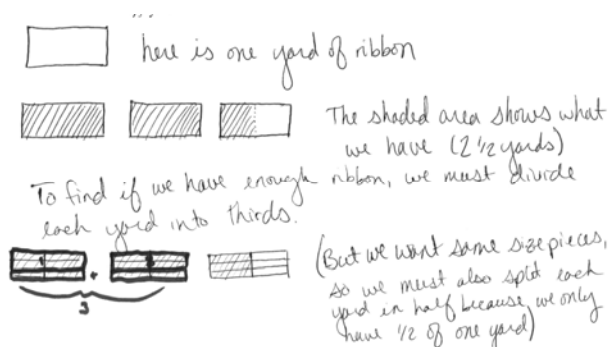 here is one yard of ribbon
The shaded area shows what
we have (2 1/2 yards)
To find if we have enough ribbon, we must divide
each yard into thirds.
(But we want same size pieces,
so we must also split each
yard in half because we only
have 1/2 of one yard)
3